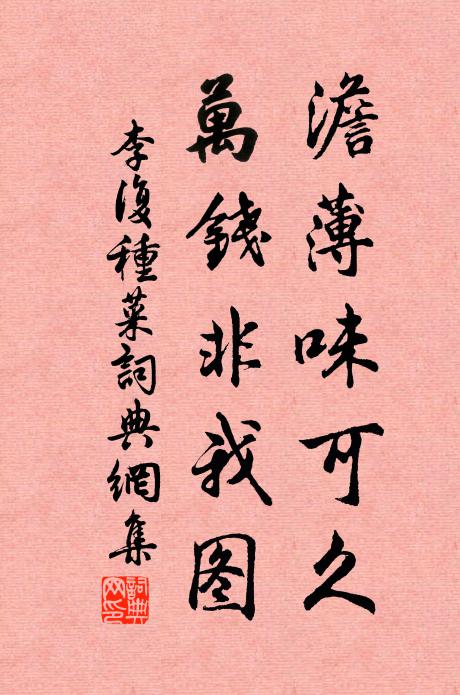 澹薄味可久
萬錢非我图
李復種菜詞典網集
詞典网印